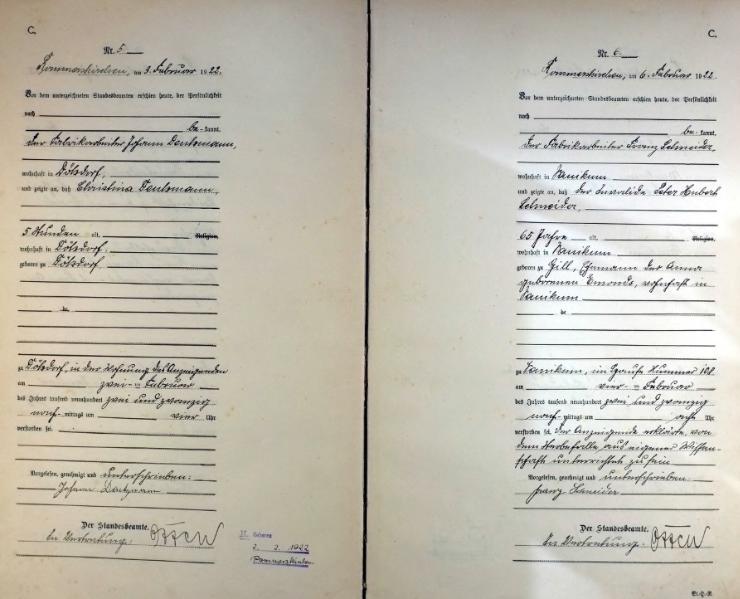 C.
Nr. 5
Rommerskirchen, am 3. Februar 1922.
Vor dem unterzeichneten Standesbeamten erschien heute, der Persönlichkeit
nach
be-kannt,
der Fabrikarbeiter Johann
wohnhaft in
und zeigte an, daß Christina
5 Stunden alt, Religion,
wohnhaft in
geboren zu
de
zu in der Wohnung des Anzeigenden
am zwei-ten Februar
des Jahres tausend neunhundert zwei und zwanzig
nach-mittags um vier Uhr
verstorben sei.
Vorgelesen, genehmigt und unterschrieben:
Johann
Der Standesbeamte.
In Vertretung: Otten
Geboren
2. 2. 1922
Rommerskirchen
C.
Nr. 6
Rommerskirchen, am 6. Februar 1922.
Vor dem unterzeichneten Standesbeamten erschien heute, der Persönlichkeit
nach
be-kannt,
der Fabrikarbeiter Franz Schneider,
wohnhaft in Vanikum
und zeigte an, daß der Invalide Peter Hubert
Schneider,
65 Jahre alt, Religion,
wohnhaft in Vanikum
geboren zu Gill, Ehemann der Anna
geborenen Esmonds, wohnhaft in
Vanikum
de
zu Vanikum, im Hause Nummer 108
am vier-ten Februar
des Jahres tausend neunhundert zwei und zwanzig
nach-mittags um acht Uhr
verstorben sei. Der Anzeigende erklärte, von
dem Sterbefalle aus eigener Wissen-
schaft unterrichtet zu sein.
Vorgelesen, genehmigt und unterschrieben
Franz Schneider
Der Standesbeamte.
In Vertretung: Otten